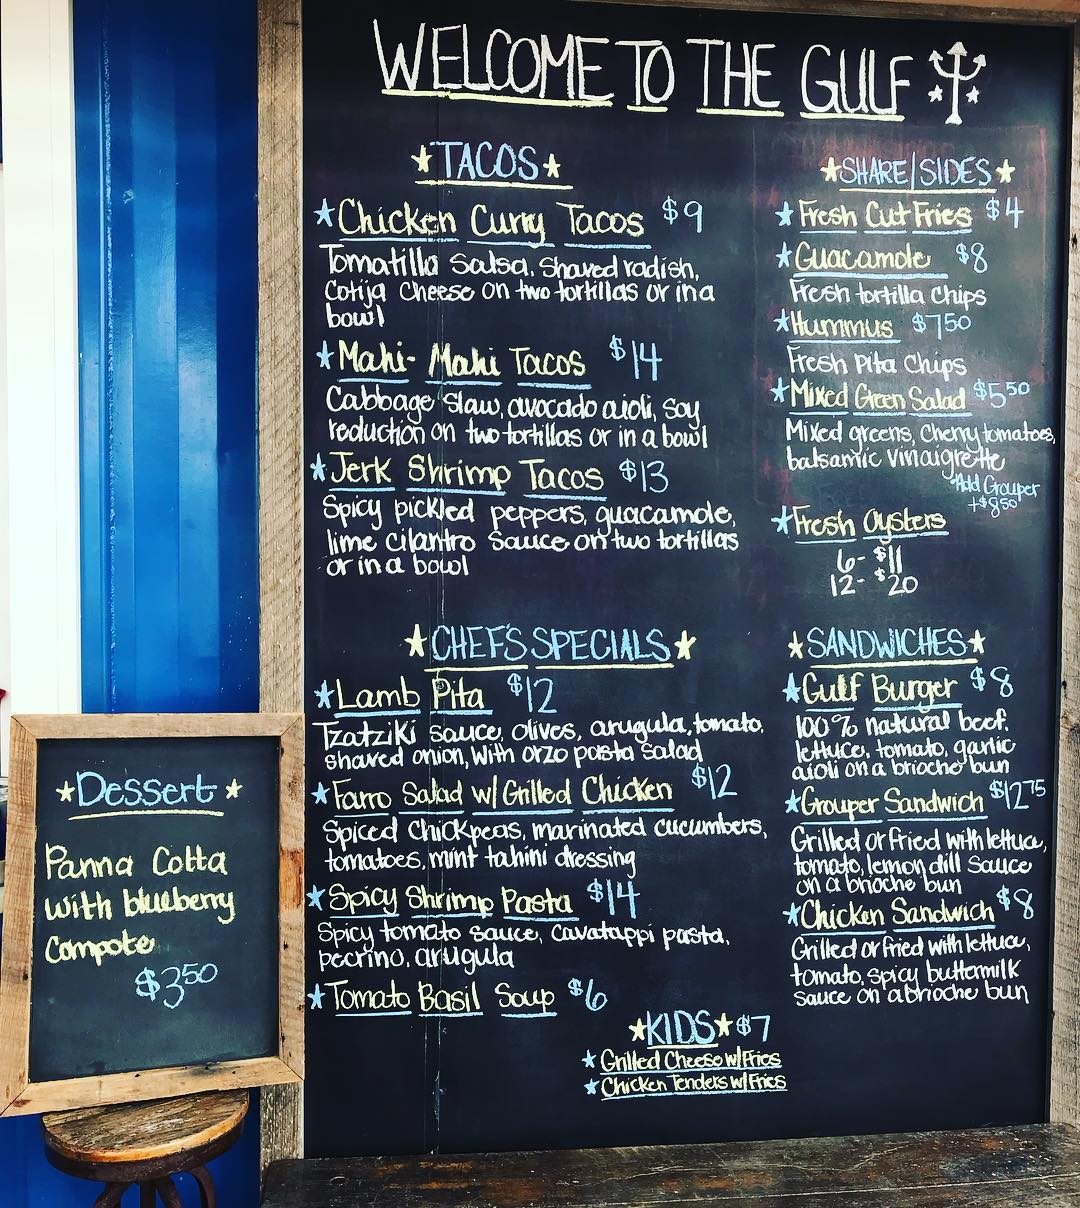 WELCOME TO THE GULF
★TACOS★
★Chicken Curry Tacos $9
Tomatillo salsa, shaved radish,
Cotija Cheese on two tortillas or in a
bowl
★Mahi-Mahi Tacos $14
Cabbage slaw, avocado aioli, soy
reduction on two tortillas or in a bowl
★Jerk Shrimp Tacos $13
Spicy pickled peppers, guacamole,
lime cilantro sauce on two tortillas
or in a bowl
★SHARE/SIDES★
★Fresh Cut Fries $4
★Guacamole $8
Fresh tortilla chips
★Hummus $7.50
Fresh Pita Chips
★Mixed Green Salad $5.50
Mixed greens, Cherry tomatoes,
balsamic vinaigrette
*Add Grouper
+$8.50
★Fresh Oysters
6- $11
12- $20
★CHEF'S SPECIALS★
★Lamb Pita $12
Tzatziki sauce, olives, arugula, tomato,
shaved onion, with orzo pasta salad
★Farro Salad w/Grilled Chicken $12
Spiced Chickpeas, marinated cucumbers,
tomatoes, mint tahini dressing
★Spicy Shrimp Pasta $14
Spicy tomato sauce, cavatappi pasta,
pecrino, arugula
★Tomato Basil Soup $6
★SANDWICHES★
★Gulf Burger $8
100% natural beef,
lettuce, tomato, garlic
aioli on a brioche bun
★Grouper Sandwich $12.75
Grilled or fried with lettuce,
tomato, lemon dill sauce
on a brioche bun
★Chicken Sandwich $8
Grilled or fried with lettuce,
tomato, spicy buttermilk
sauce on a brioche bun
★KIDS★ $7
★Grilled Cheese w/Fries
★Chicken Tenders w/Fries
★Dessert★
Panna Cotta
with blueberry
compote
$3.50